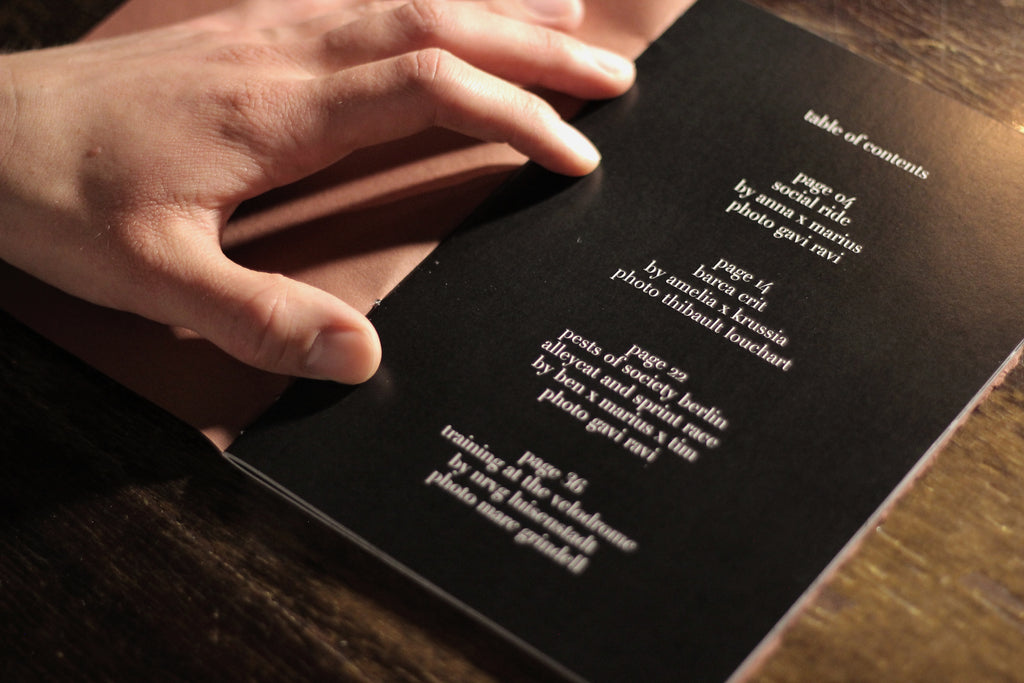 table of contents
page 04
social ride
by anna x marius
photo gavi ravi
page 14
barca crit
by amelia x krussia
photo thibault louchart
page 22
pests of society berlin
alleycat and sprint race
by ben x marius x tim
photo gavi ravi
page 36
training at the velodrome
by nrvg luisenstadt
photo marc grindell